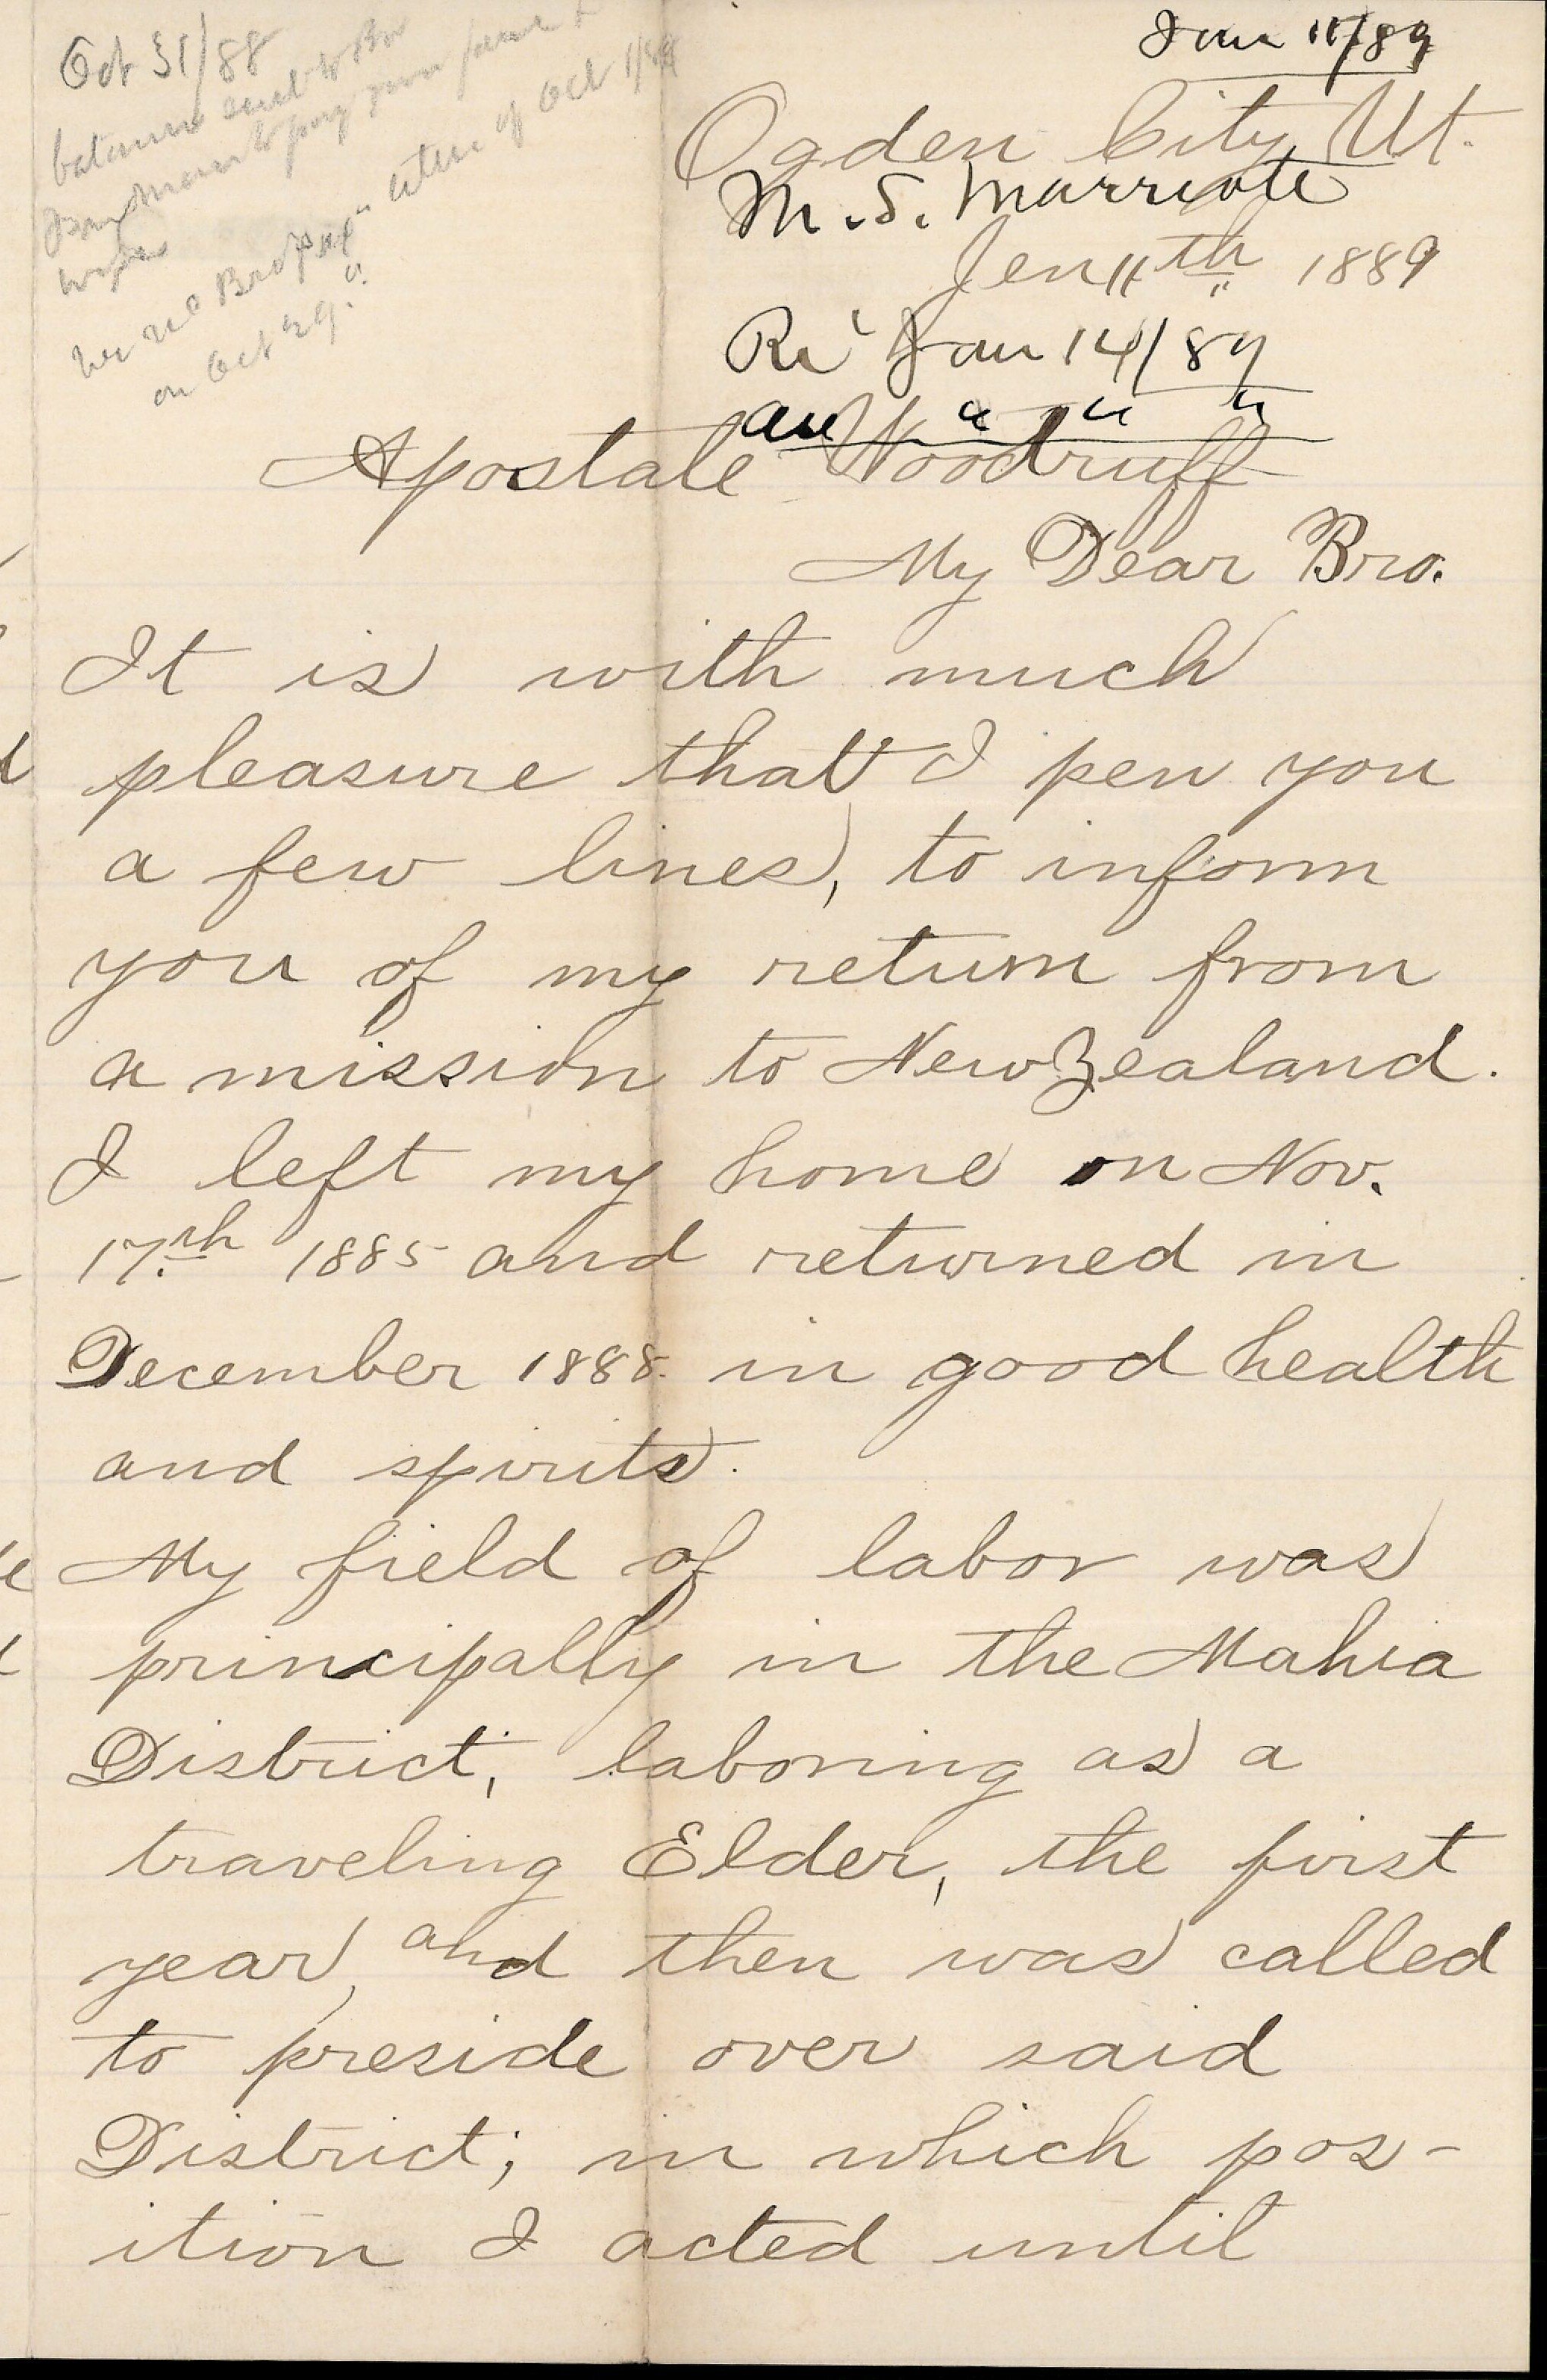 Oct 31/88
Jan 11/89
Ogden City Ut.
M. S. Marriott
Jen 11th 1889
Re' Jan 14/89
an " " "
Apostale Woodruff
My Dear Bro.
It is with much
pleasure that I pen you
a few lines, to inform
you of my return from
a mission to New Zealand.
I left my home on Nov.
17th 1885 and returned in
December 1888. in good health
and spirits.
My field of labor was
principally in the Mahia
District, laboring as a
traveling Elder, the first
year, and then was called
to preside over said
District; in which pos-
ition I acted until